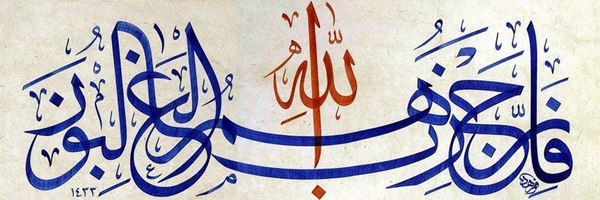 فَإِنَّ حِزْبَ اللّٰهِ هُمُ الْغٰلِبُونَ
١٤٣٣